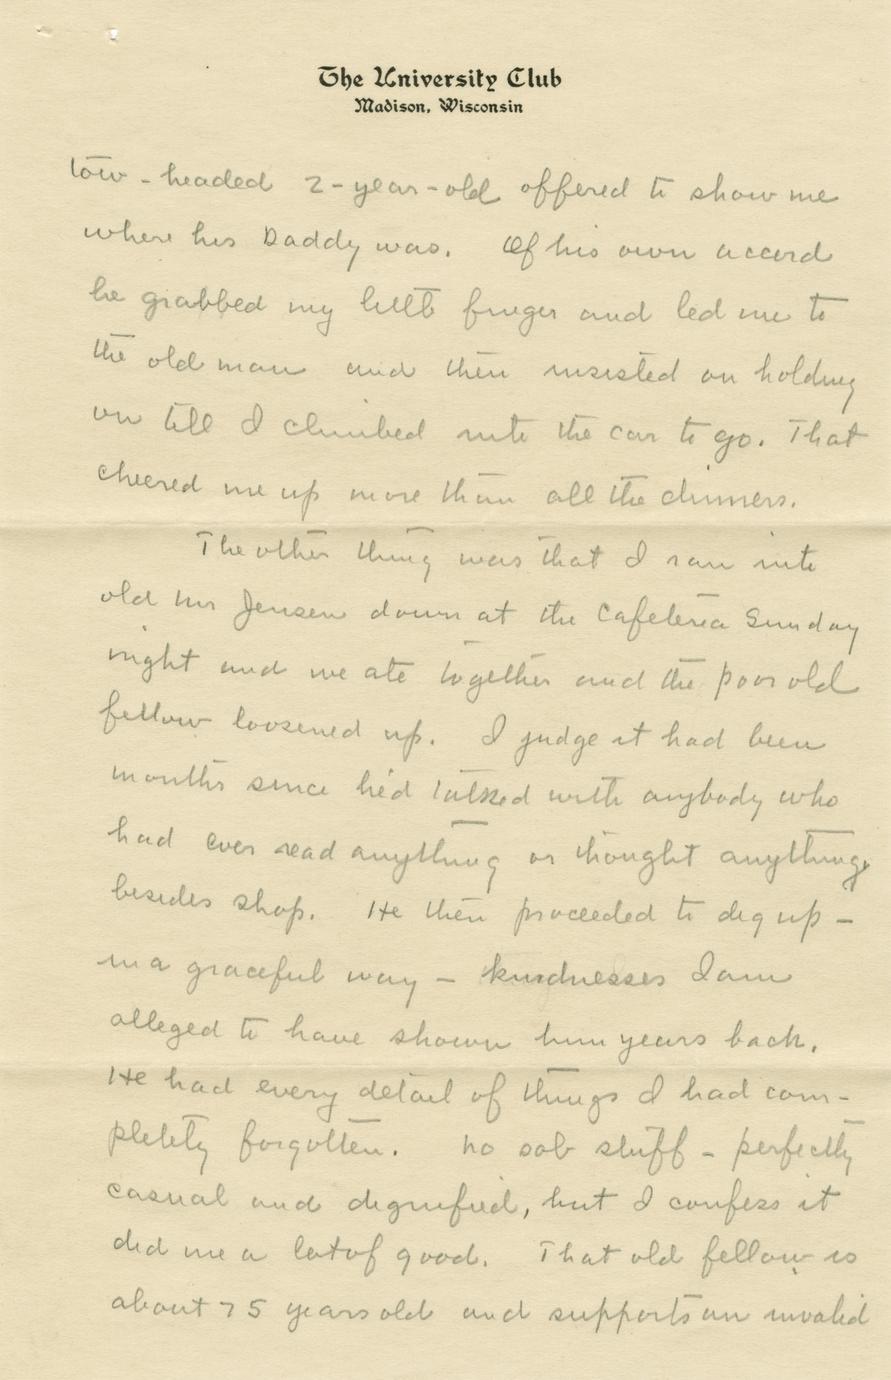 The University Club
Madison, Wisconsin
tow-headed 2-year-old offered to show me
where his Daddy was. Of his own accord
he grabbed my little finger and led me to
the old man and then insisted on holding
on till I climbed into the car to go. That
cheered me up more than all the dinners.
The other thing was that I ran into
old Mr Jensen down at the Cafeteria Sunday
night and we ate together and the poor old
fellow loosened up. I judge it had been
months since he'd talked with anybody who
had ever read anything or thought anything
besides shop. He then proceeded to dig up -
in a graceful way - kindnesses I am
alleged to have shown him years back.
He had every detail of things I had com-
pletely forgotten. No sob stuff - perfectly
casual and dignified, but I confess it
did me a lot of good. That old fellow is
about 75 years old and supports an invalid